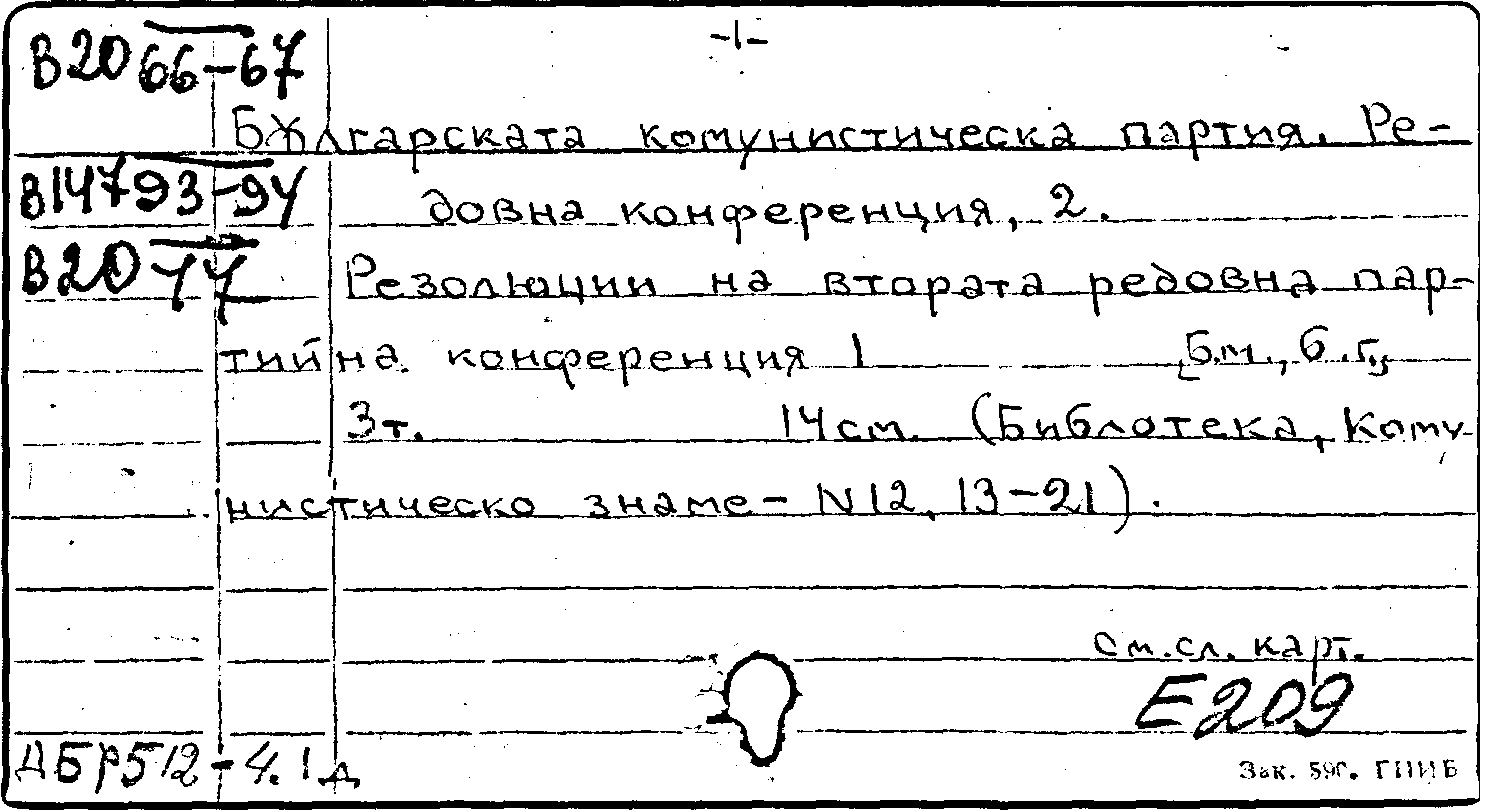 -1-
В2066-67
БѪлгарската комунистическа партия. Ре-
В14793-94
довна конференция, 2.
В2077
Резолюции на втората редовна пар-
тийна конференция 1 [Б.м., б.г.,
3т. 14см. (Библотека, Кому-
нистическо знаме - N12, 13-21).
см. сл. карт.
Е209
ДБР512-4.1д
Зак. 590. ГПИБ